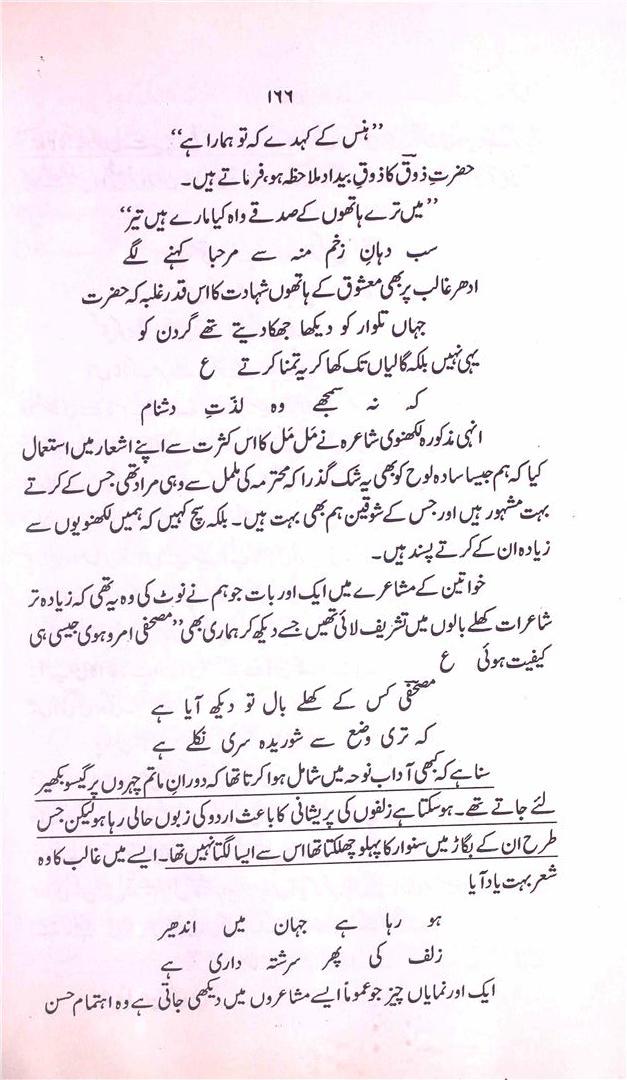 ۱۶۶
”ہنس کے کہدے کہ تو ہمارا ہے“
حضرتِ ذوقؔ کا ذوقِ بیداد ملاحظہ ہو، فرماتے ہیں۔
”میں ترے ہاتھوں کے صدقے واہ کیا مارے ہیں تیر“
سب دہانِ زخم منہ سے مرحبا کہنے لگے
ادھر غالب پر بھی معشوق کے ہاتھوں شہادت کا اس قدر غلبہ کہ حضرت
جہاں تلوار کو دیکھا جھکا دیتے تھے گردن کو
یہی نہیں بلکہ گالیاں تک کھا کر یہ تمنا کرتے ع
کہ نہ سمجھے وہ لذّتِ دشنام
انہی مذکورہ لکھنوی شاعرہ نے مَل مَل کا اس کثرت سے اپنے اشعار میں استعمال
کیا کہ ہم جیسا سادہ لوح کو بھی یہ شک گذرا کہ محترمہ کی ململ سے وہی مراد تھی جس کے کرتے
بہت مشہور ہیں اور جس کے شوقین ہم بھی بہت ہیں۔ بلکہ سچ کہیں کہ ہمیں لکھنویوں سے
زیادہ ان کے کرتے پسند ہیں۔
خواتین کے مشاعرے میں ایک اور بات جو ہم نے نوٹ کی وہ یہ تھی کہ زیادہ تر
شاعرات کھلے بالوں میں تشریف لائی تھیں جسے دیکھ کر ہماری بھی ”مصحفی امروہوی جیسی ہی
کیفیت ہوئی ع
مصحفیؔ کس کے کھلے بال تو دیکھ آیا ہے
کہ تری وضع سے شوریدہ سری نکلے ہے
سنا ہے کہ کبھی آداب نوحہ میں شامل ہوا کرتا تھا کہ دورانِ ماتم چہروں پر گیسو بکھیر
لئے جاتے تھے۔ ہو سکتا ہے زلفوں کی پریشانی کا باعث اردو کی زبوں حالی رہا ہو لیکن جس
طرح ان کے بگاڑ میں سنوار کا پہلو چھلکتا تھا اس سے ایسا لگتا نہیں تھا۔ ایسے میں غالب کا وہ
شعر بہت یاد آیا
ہو رہا ہے جہان میں اندھیر
زلف کی پھر سرشتہ داری ہے
ایک اور نمایاں چیز جو عموماً ایسے مشاعروں میں دیکھی جاتی ہے وہ اہتمام حسن